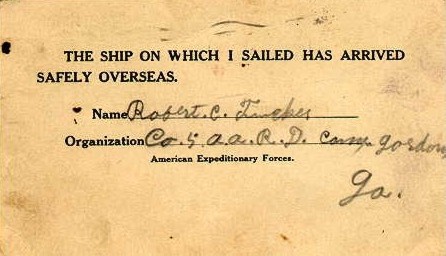 THE SHIP ON WHICH I SAILED HAS ARRIVED
SAFELY OVERSEAS.
Name Robert. C. Tucker
Organization Co. 5 a a. R. D. Camp Gordon
American Expeditionary Forces.
Ga.